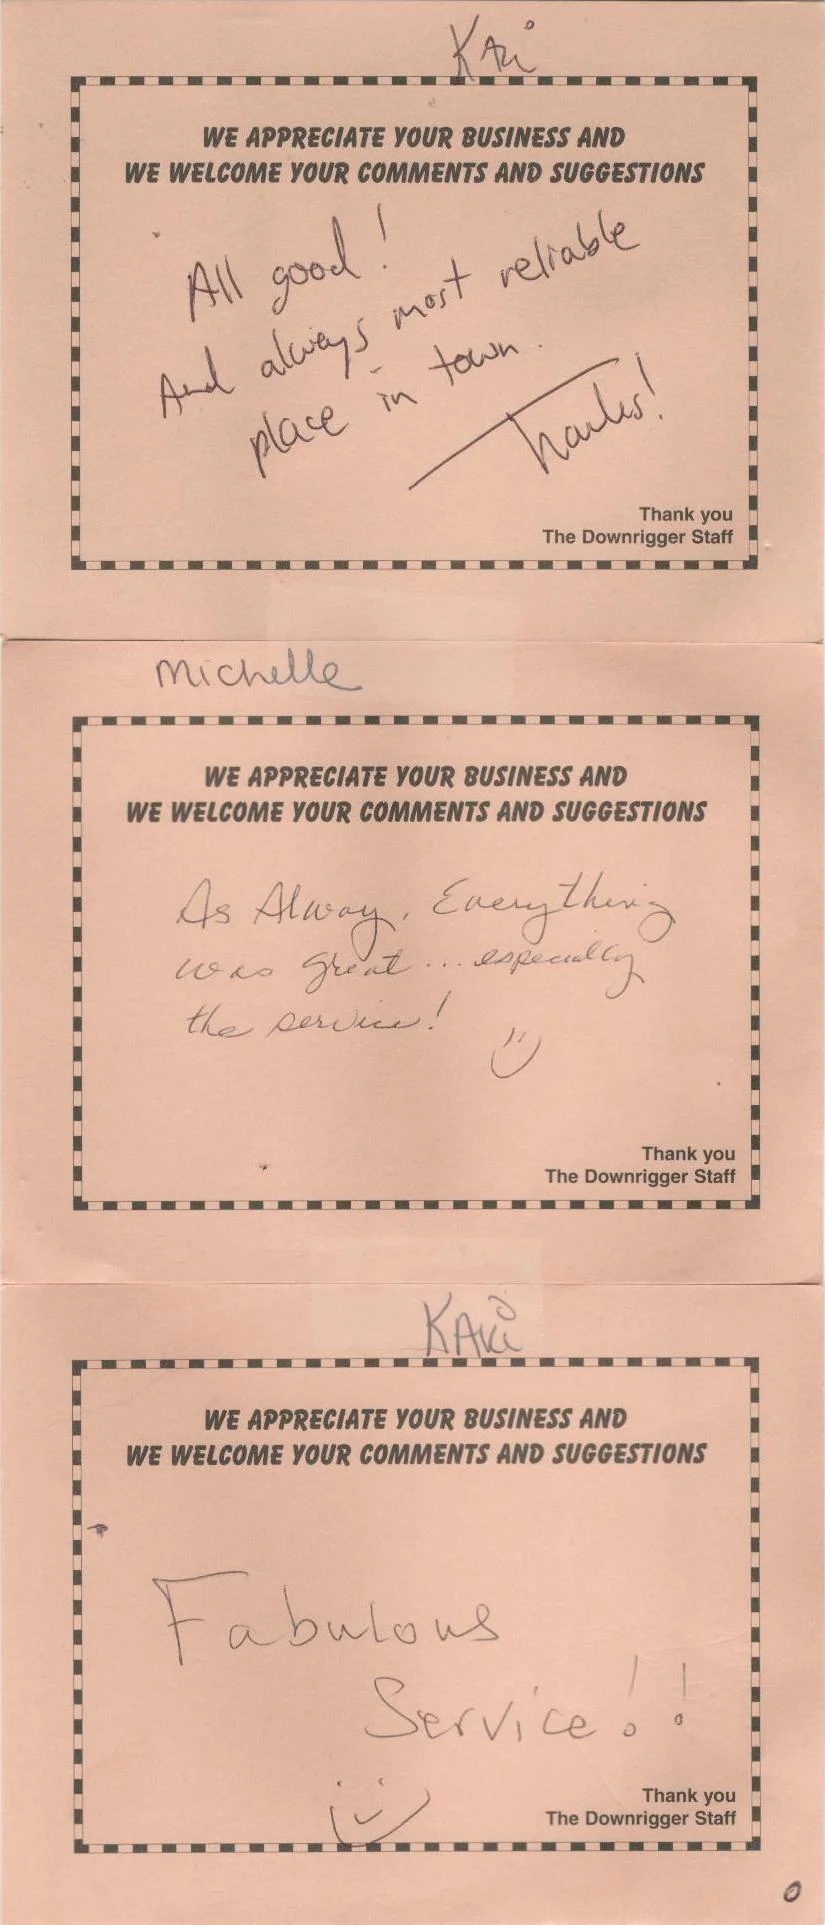 Kari
WE APPRECIATE YOUR BUSINESS AND
WE WELCOME YOUR COMMENTS AND SUGGESTIONS
All good!
And always most reliable
place in town.
Thanks!
Thank you
The Downrigger Staff
Michelle
WE APPRECIATE YOUR BUSINESS AND
WE WELCOME YOUR COMMENTS AND SUGGESTIONS
As Alway, Everything
was great... especially
the service!
Thank you
The Downrigger Staff
WE APPRECIATE YOUR BUSINESS AND
WE WELCOME YOUR COMMENTS AND SUGGESTIONS
Fabulous
Service!!
Thank you
The Downrigger Staff